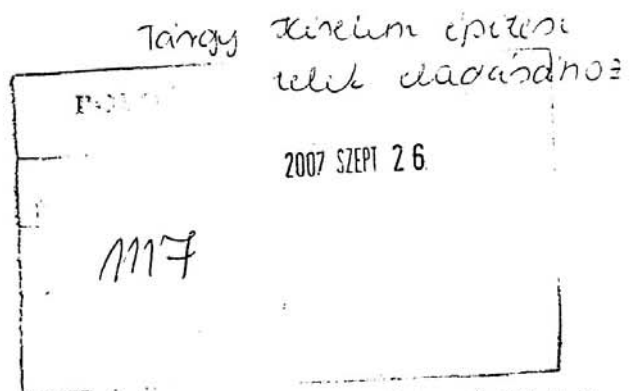 Tárgy Kérelem építési
telek eladásához
2007 SZEPT 26.
1117